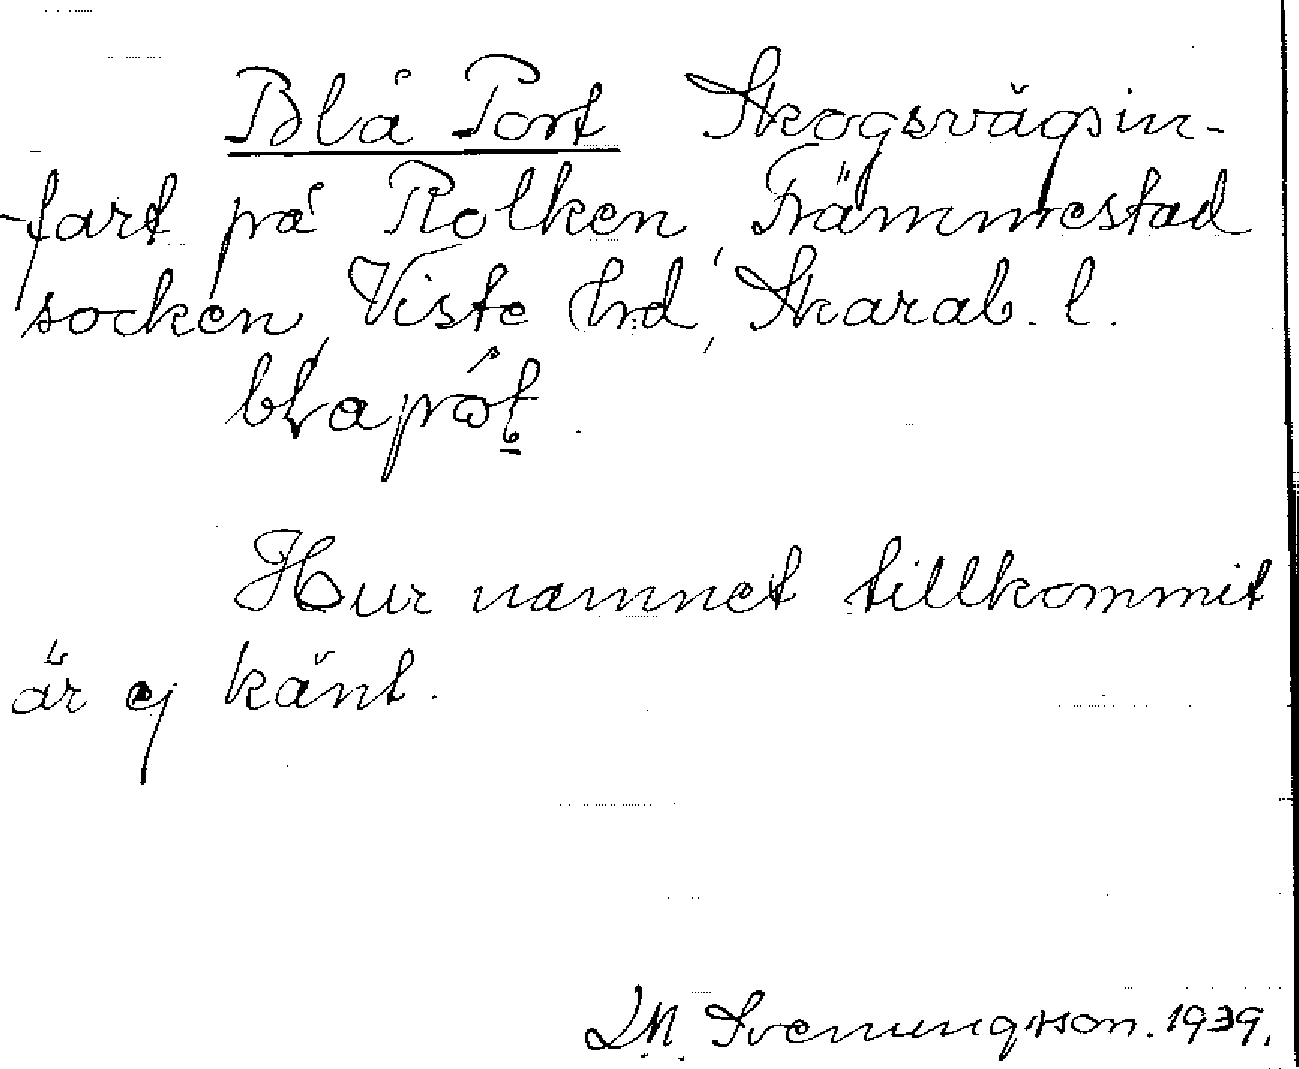 Blå Port Skogsvägsin-
-fart på Rolken, Främmestad
socken, Viste hd, Skarab. l.
Hur namnet tillkommit
är ej känt.
S.M. Svenungsson. 1939.